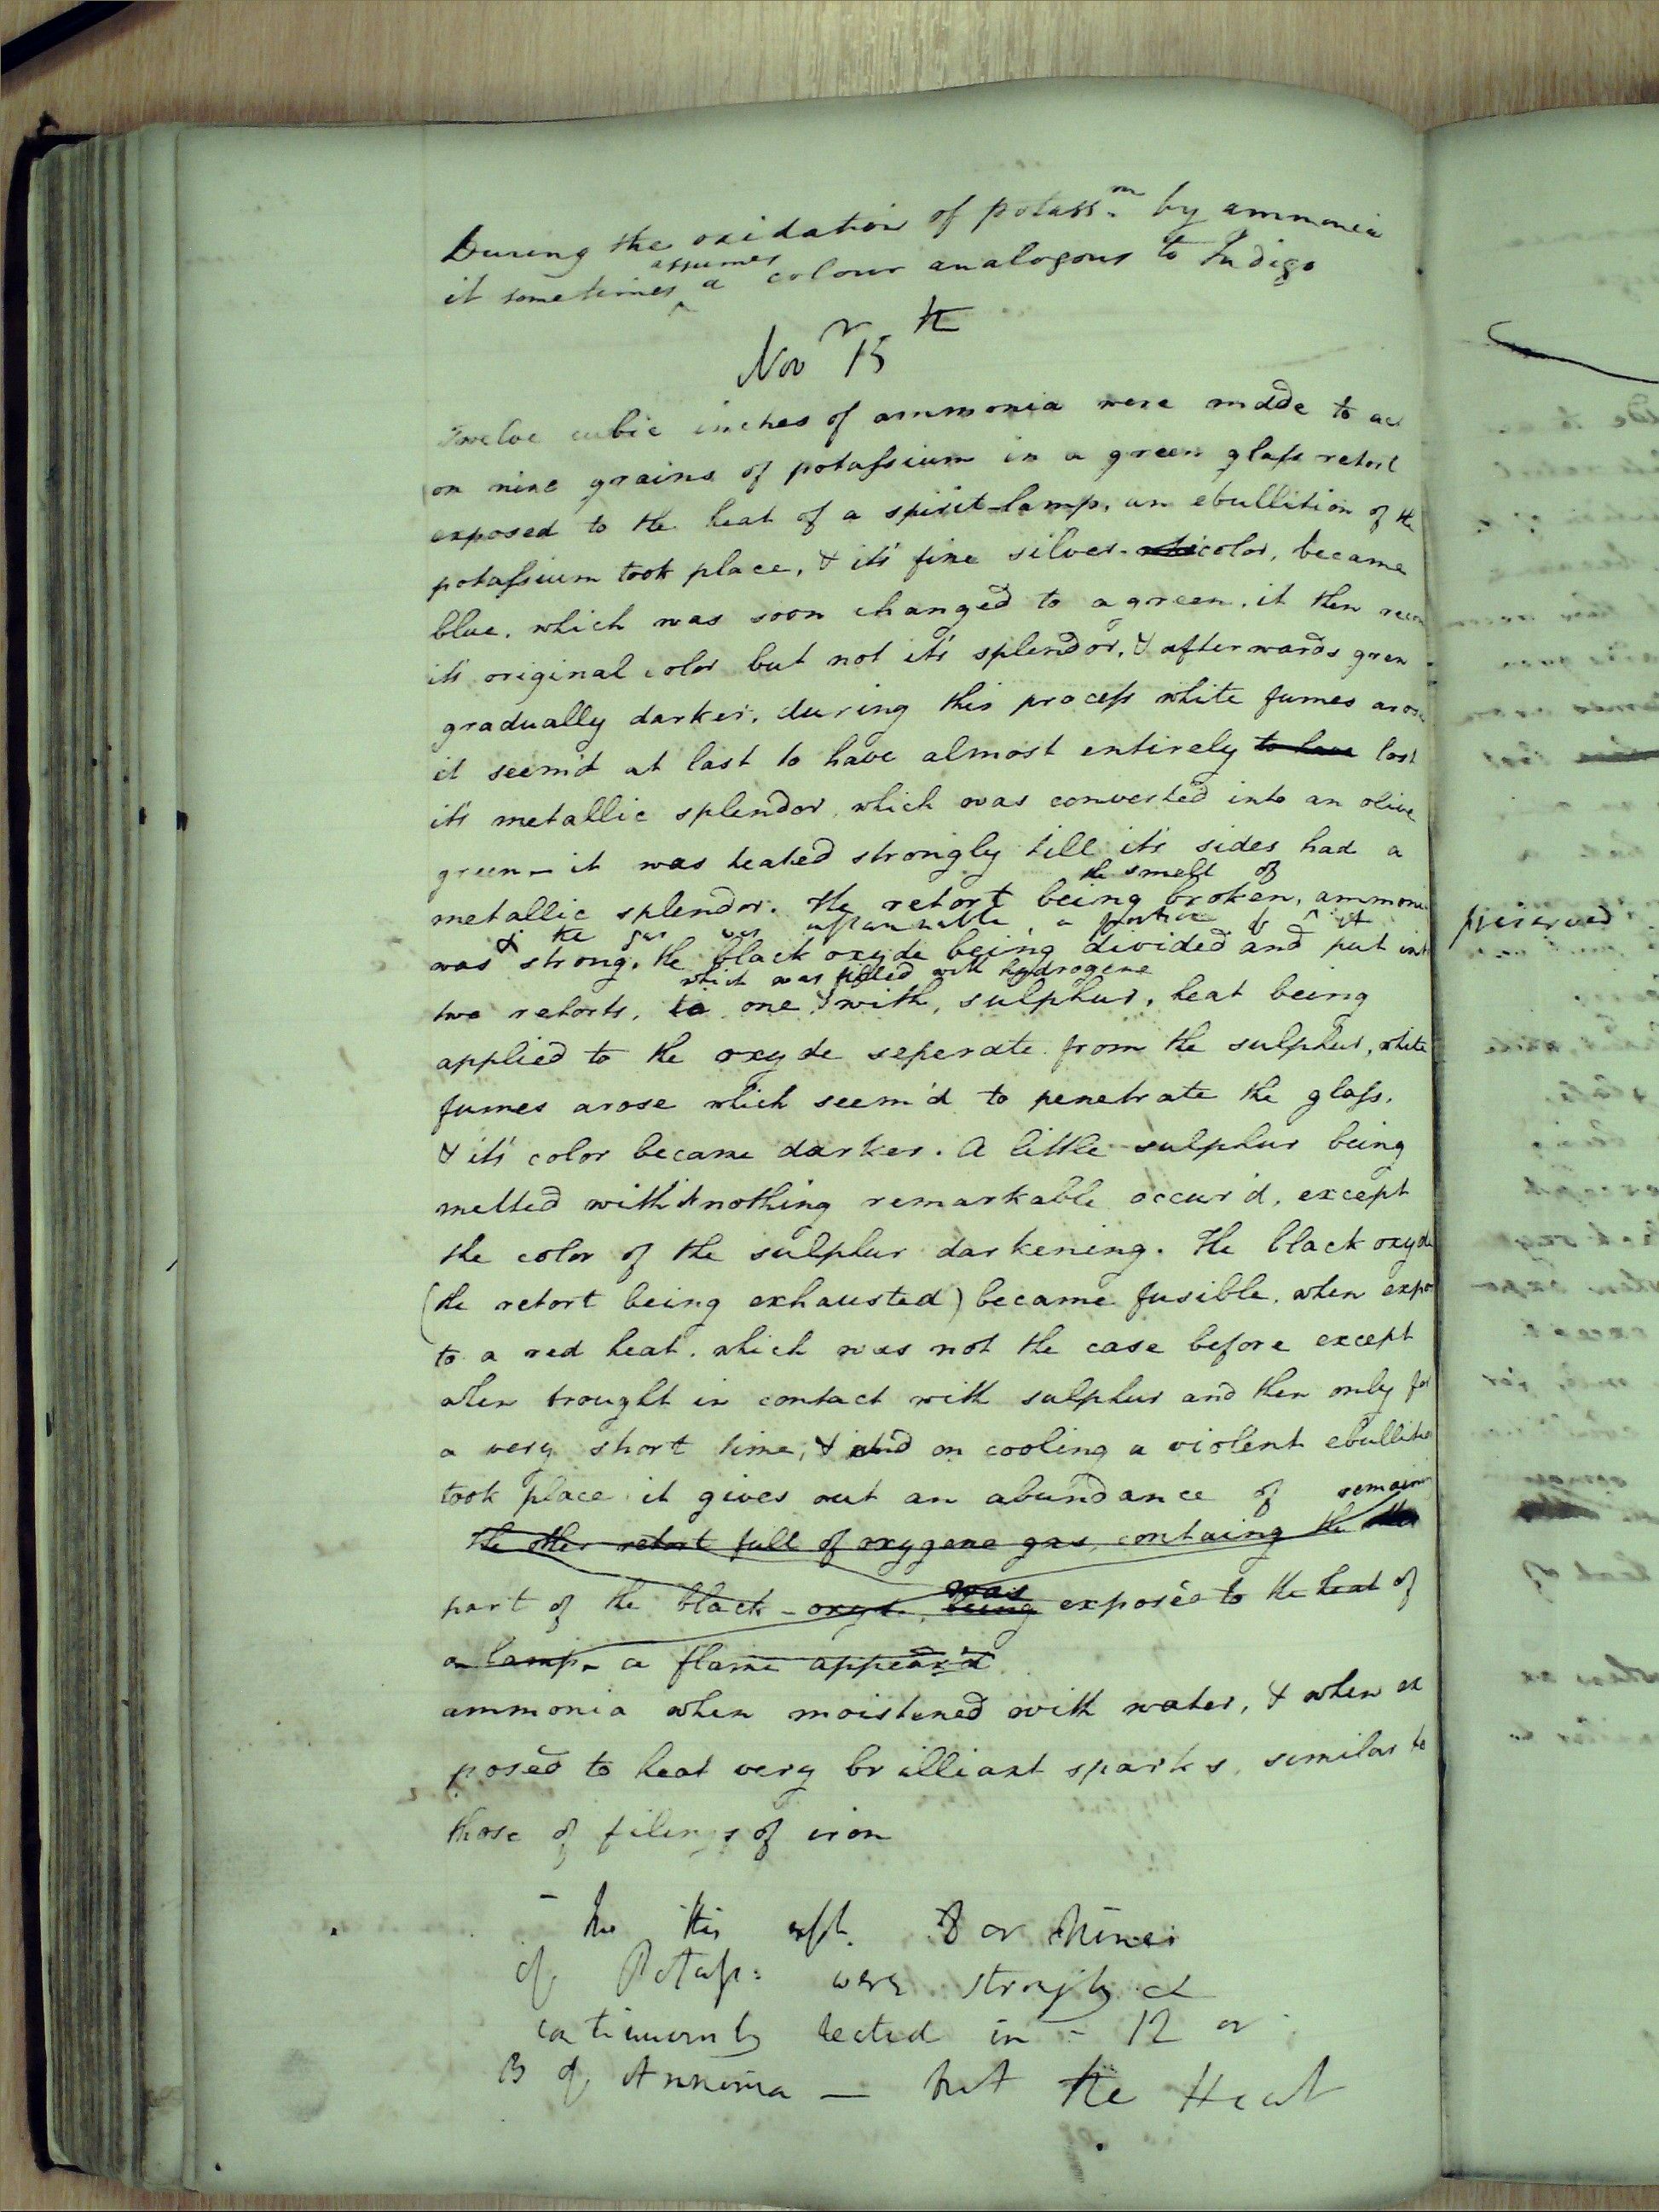 During the oxidation of potass.m by ammonia
it sometimes assumes a colour analogous to Indigo
Novr 15th
Twelve cubic inches of ammonia were made to act
on nine grains of potassium in a green glass retort
exposed to the heat of a spirit-lamp, an ebullition of the
potassium took place, & it's fine silver- color, became
blue, which was soon changed to a green. it then
it's original color but not it's splendor, & afterwards grew
gradually darker, during this process white fumes arose
it seem'd at last to have almost entirely to have lost
it's metallic splendor, which was converted into an olive
green – it was heated strongly till it's sides had a
the smell of
metallic splendor. The retort being broken, ammonia
& the gas was inflammable, a portion of it
preserved
was strong. the black oxyde being divided and put into
which was filled with hydrogene
two retorts, one with, sulphur, heat being
applied to the oxyde seperate from the sulphur, white
fumes arose which seem'd to penetrate the glass,
& it's color became darker. A little sulphur being
melted with it nothing remarkable occur'd, except
the color of the sulphur darkening. The black oxyde
(the retort being exhausted) became fusible, when expo
to a red heat, which was not the case before except
when brought in contact with sulphur and then only for
a very short time, & on cooling a violent ebullition
took place it gives out an abundance of
remaining
The other retort full of oxygene gas, containg the
was
part of the black-oxyd, being exposed to the heat of
a lamp – a flame appear'd
ammonia when moistened with water, & when ex
posed to heat very brilliant sparks, similar to
those of filings of iron
– In this expt. 8 or nine
of Potass: were strongly &
heated in – 12 or
13 of Ammonia – but the Heat